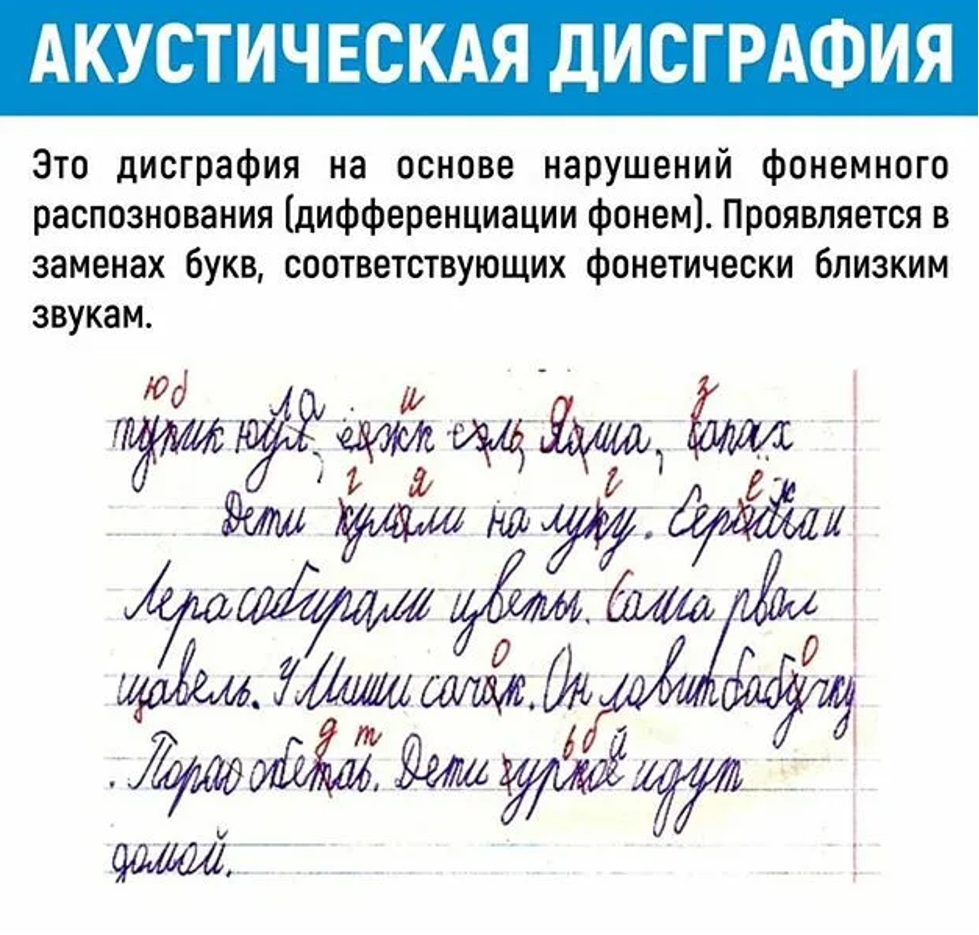 АКУСТИЧЕСКАЯ ДИСГРАФИЯ
Это дисграфия на основе нарушений фонемного
распознования (дифференциации фонем). Проявляется в
заменах букв, соответствующих фонетически близким
звукам.
ю б ла и з
тупик юул,
г я г ё ж
Дети кулали на луку.
Лера собирали цветы. Саша рвал
о о
щавель. У Миши сачак. Он ловит бабучку
д т ь б й
. Пора обетаь. Дети идут
домой.